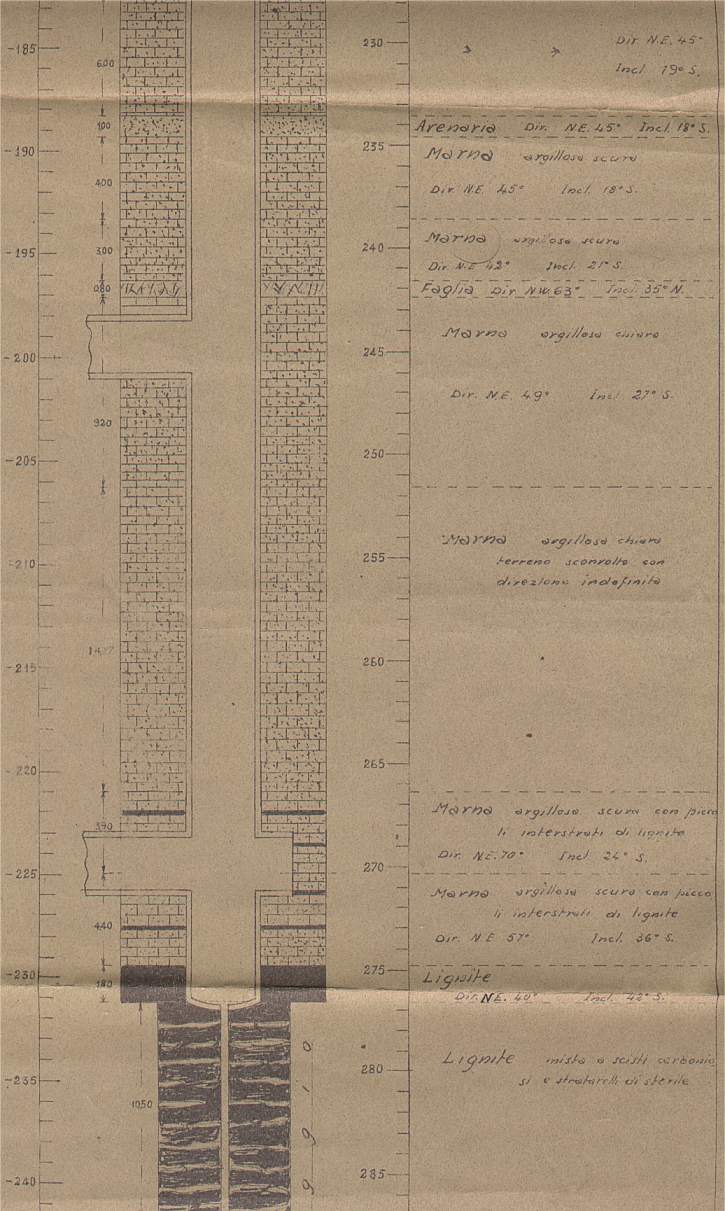 -185
600
230
Dir. N.E. 45°
Incl. 19° S.
100
Arenaria Dir. N.E. 45° Incl. 18° S.
-190
235
Marna argillosa scura
400
Dir. N.E. 45° Incl. 18° S.
-195
300
240
Marna argillosa scura
Dir. N.E 42° Incl. 21° S.
080
Faglia Dir N.W. 63° Incl. 35° N.
-200
245
Marna argillosa chiara
920
Dir. N.E. 49° Incl. 27° S.
-205
250
-210
255
Marna argillosa chiara
terreno sconvolto con
direzione indefinita
-215
260
-220
265
390
Marna argillosa scura con picco
li interstrati di lignite
Dir. N.E. 70° Incl 24° S.
-225
270
440
Marna argillosa scura con picco
li interstrati di lignite
Dir. N.E 57° Incl. 36° S.
-230
180
275
Lignite
Dir. NE. 40° Incl. 42° S.
-235
1050
280
Lignite mista a scisti carbonio
si e straterelli di sterile
-240
285
ggio